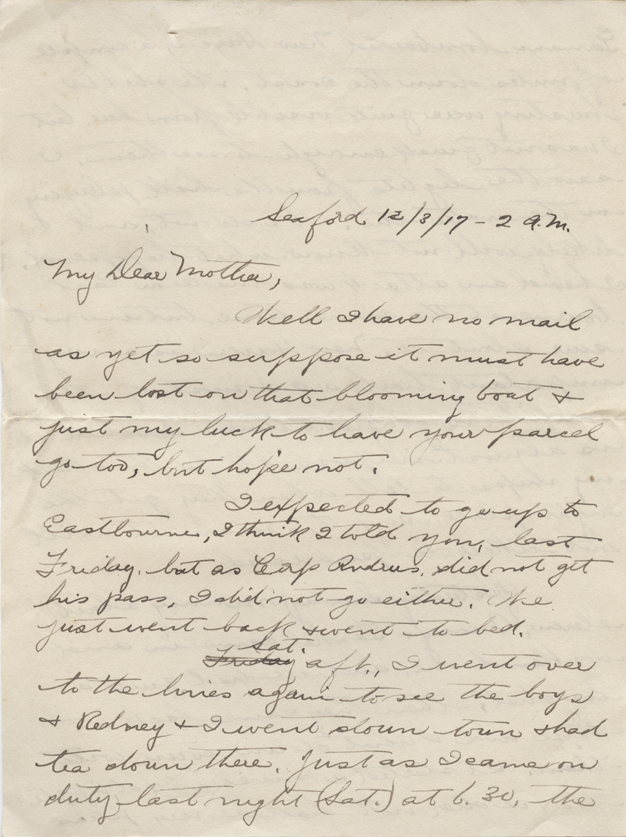 Seaford 12/3/17 - 2 a.m.
My Dear Mother,
Well I have no mail
as yet so suppose it must have
been lost on that blooming boat &
just my luck to have your parcel
go too, but hope not.
I expected to go up to
Eastbourne, I think I told you, last
Friday, but as Corp Andrus, did not get
his pass, I did not go either. We
just went back & went to bed.
Sat.
Friday aft., I went over
to the lines again to see the boys
& Redney & I went down town & had
tea down there. Just as I came on
duty last night (Sat.) at 6.30, the